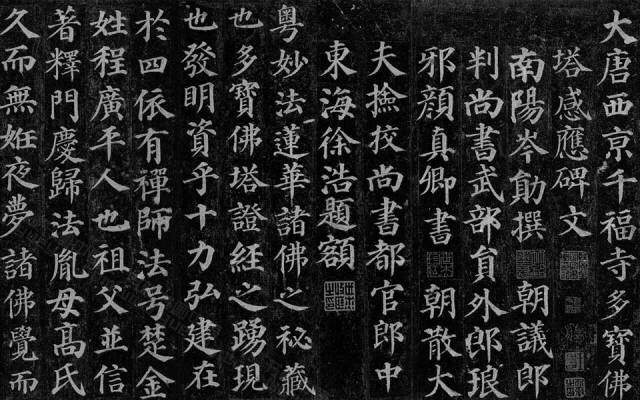 大唐西京千福寺多寶佛
塔感應碑文
南陽岑勛撰 朝議郎
判尚書武部員外郎琅
邪顏真卿書 朝散大
夫撿挍尚書都官郎中
東海徐浩題額
粵妙法蓮華諸佛之秘藏
也多寶佛塔證經之踴現
也發明資乎十力弘建在
於四依有禪師法号楚金
姓程廣平人也祖父並信
著釋門慶歸法胤母高氏
久而無妊夜夢諸佛覺而